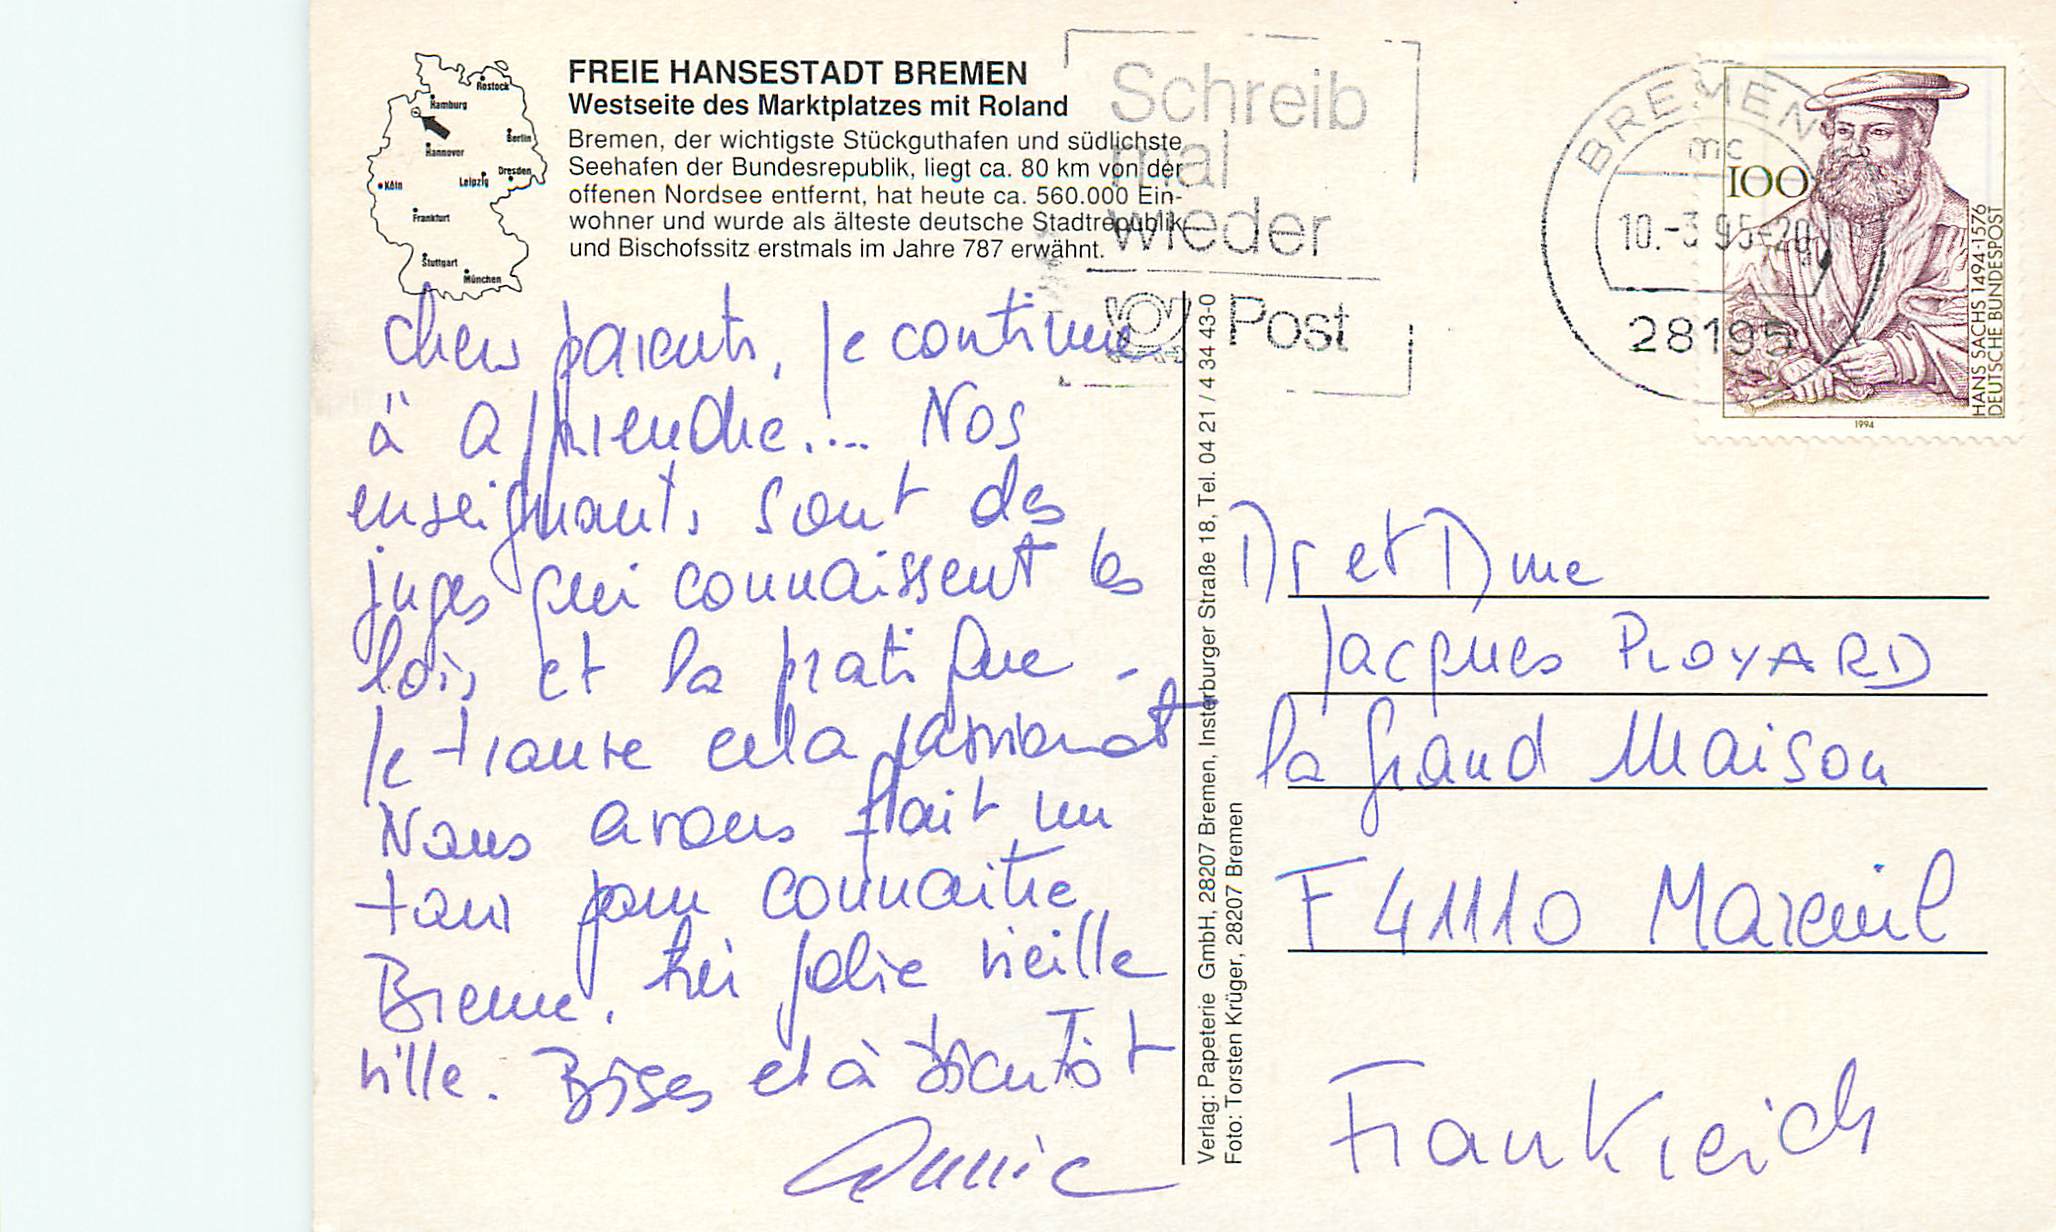 Rostock
Hamburg
Berlin
Hannover
Leipzig
Dresden
Köln
Frankfurt
Stuttgart
München
FREIE HANSESTADT BREMEN
Westseite des Marktplatzes mit Roland
Bremen, der wichtigste Stückguthafen und südlichste
Seehafen der Bundesrepublik, liegt ca. 80 km von der
offenen Nordsee entfernt, hat heute ca. 560.000 Ein-
wohner und wurde als älteste deutsche Stadtrepublik
und Bischofssitz erstmals im Jahre 787 erwähnt.
Schreib
mal
wieder
Post
BREMEN
mc
10.-3.95-20
28195
100
HANS SACHS 1494-1576
DEUTSCHE BUNDESPOST
1994
Chers parents, je continue
à apprendre.... Nos
enseignants sont des
juges qui connaissent les
lois et la pratique -
Je trouve cela passionant
Nous avons fait un
tour pour connaitre
Breme, très jolie vieille
ville. Bises et à bientôt
Annie
Verlag: Papeterie GmbH, 28207 Bremen, Insterburger Straße 18, Tel. 04 21 / 4 34 43-0
Foto: Torsten Krüger, 28207 Bremen
Dr et Dme
Jacques PLOYARD
la Grand Maison
F 41110 Mareuil
Frankreich